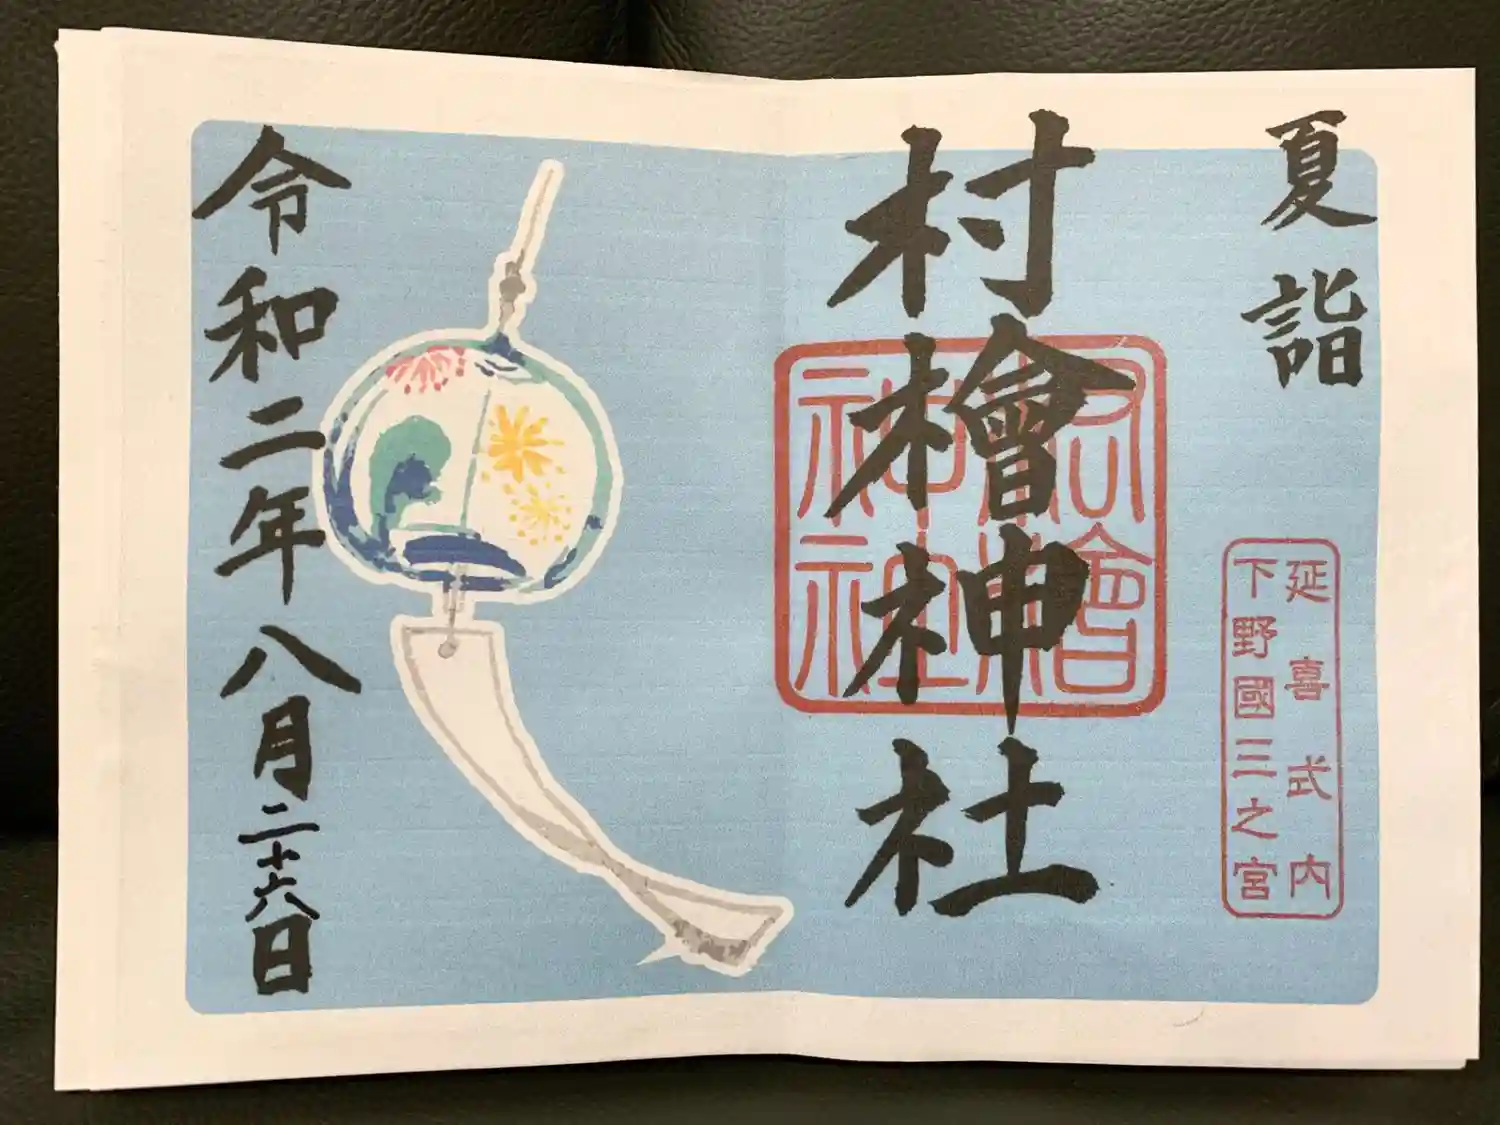 夏詣
延喜式内
下野國三之宮
村檜神社
村檜
神社
令和二年八月二十六日